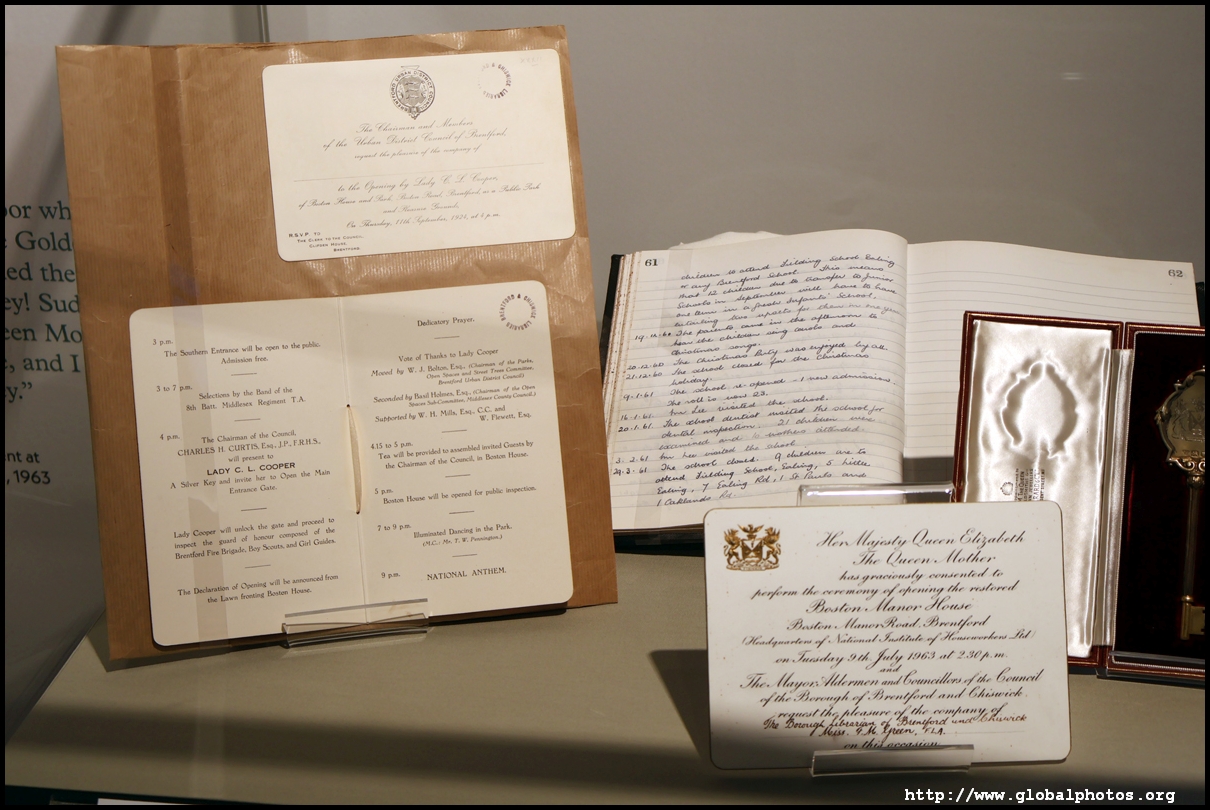 or wh
Gold
ed the
ey! Sud
een Mo
, and I
y.”
nt at
, 1963
BRENTFORD URBAN DISTRICT COUNCIL
The Chairman and Members
of the Urban District Council of Brentford,
request the pleasure of the company of
to the Opening by Lady C. L. Cooper,
of Boston House and Park, Boston Road, Brentford, as a Public Park
and Pleasure Ground,
On Thursday, 11th September, 1924, at 4 p.m.
R.S.V.P. TO
THE CLERK TO THE COUNCIL,
CLIFDEN HOUSE,
BRENTFORD.
3 p.m.
The Southern Entrance will be open to the public.
Admission free.
3 to 7 p.m.
Selections by the Band of the
8th Batt. Middlesex Regiment T.A.
4 p.m.
The Chairman of the Council,
CHARLES H. CURTIS, Esq., J.P., F.R.H.S.,
will present to
LADY C. L. COOPER
A Silver Key and invite her to Open the Main
Entrance Gate.
Lady Cooper will unlock the gate and proceed to
inspect the guard of honour composed of the
Brentford Fire Brigade, Boy Scouts, and Girl Guides.
The Declaration of Opening will be announced from
the Lawn fronting Boston House.
BRENTFORD & CHISWICK LIBRARIES
Dedicatory Prayer.
Vote of Thanks to Lady Cooper
Moved by W. J. Bolton, Esq., (Chairman of the Parks,
Open Spaces and Street Trees Committee,
Brentford Urban District Council)
Seconded by Basil Holmes, Esq., (Chairman of the Open
Spaces Sub-Committee, Middlesex County Council.)
Supported by W. H. Mills, Esq., C.C. and
W. Flewett, Esq.
4.15 to 5 p.m.
Tea will be provided to assembled invited Guests by
the Chairman of the Council, in Boston House.
5 p.m.
Boston House will be opened for public inspection.
7 to 9 p.m.
Illuminated Dancing in the Park.
(M.C.: Mr. T. W. Pennington.)
9 p.m.
NATIONAL ANTHEM.
61
children to attend Fielding School Ealing
or any Brentford School. This means
that 12 children due to transfer to Junior
Schools in September will have to have
one term in a fresh Infants' School.
19.12.60 The parents came in the afternoon to
hear the children sing carols and
Christmas songs.
20.12.60 The Christmas Party was enjoyed by all.
21.12.60 The school closed for the Christmas
holiday.
9.1.61 The school re-opened - 1 new admission.
The roll is now 23.
16.1.61. Mr Lee visited the school.
20.1.61. The school dentist visited the school for
dental inspection. 21 children were
examined and 10 mothers attended.
3.2.61 Mr Lee visited the school.
29.3.61 The school closed. 9 children are to
attend Fielding School, Ealing, 5 Little
Ealing, 7 Ealing Rd, 1 St Pauls and
1 Oaklands Rd.
62
Her Majesty Queen Elizabeth
The Queen Mother
has graciously consented to
perform the ceremony of opening the restored
Boston Manor House
Boston Manor Road, Brentford
(Headquarters of National Institute of Houseworkers Ltd)
on Tuesday 9th July 1963 at 2.30 p.m.
and
The Mayor, Aldermen and Councillors of the Council
of the Borough of Brentford and Chiswick
request the pleasure of the company of
The Borough Librarian of Brentford and Chiswick
Miss. F.M. Green, F.L.A.
on this occasion
http://www.globalphotos.org